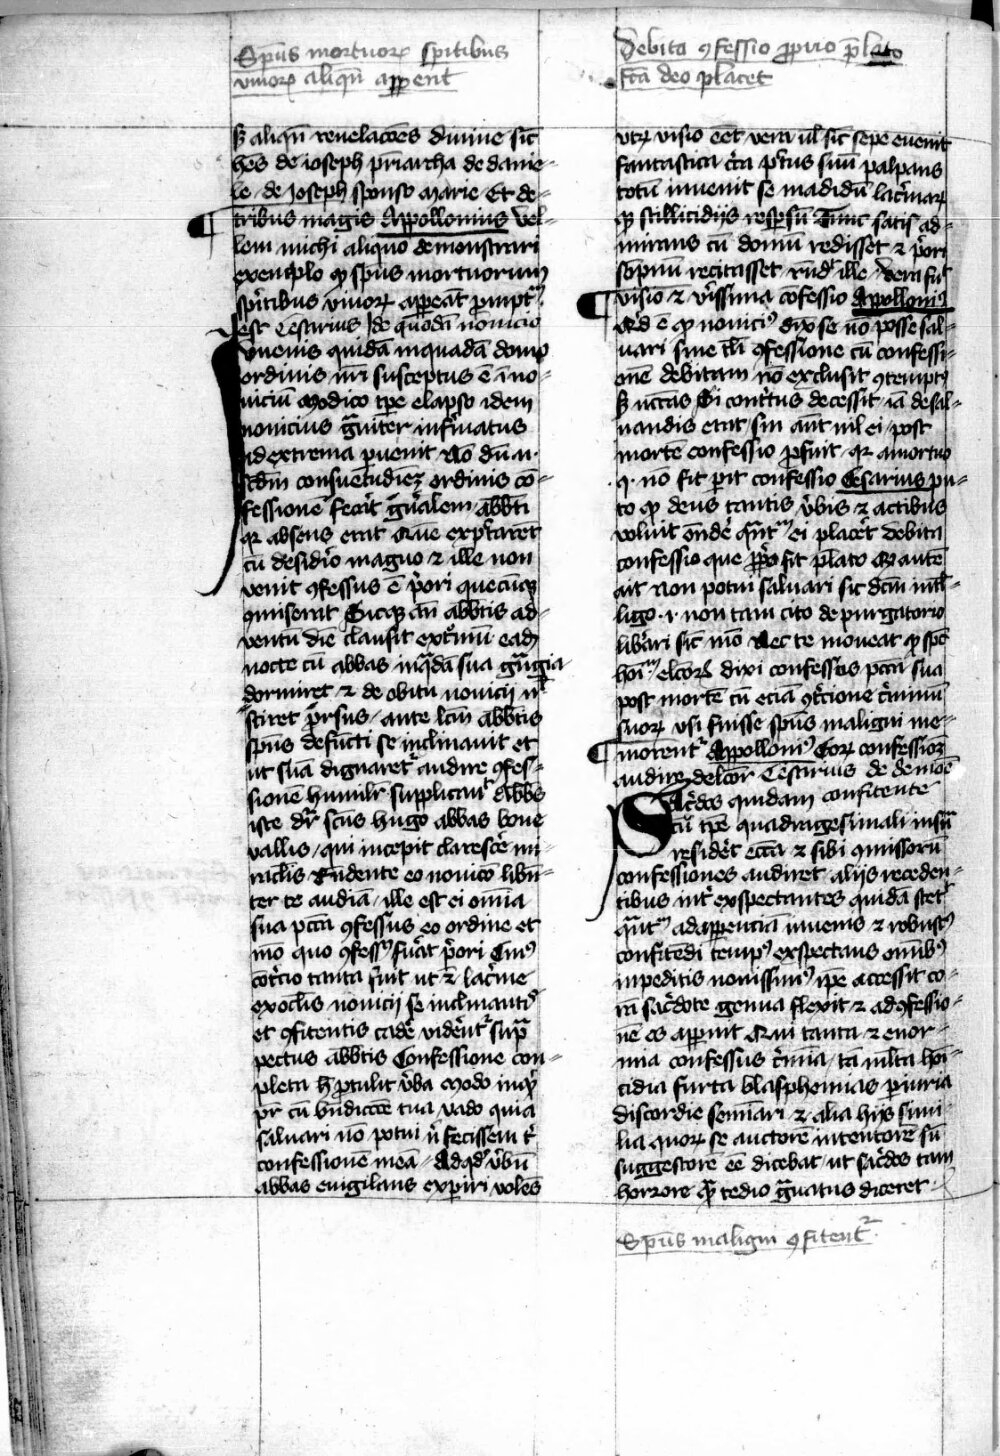 Sp̄us mortuoꝝ spitibus
viuoꝝ aliqn̄ appent
ẜ aliqn̄ reuelacōes diuine sic̄
hēs de ioseph pr̄iarcha de danie-
le / de Joseph sponso marie Et de-
tribus magis Appollonius vel-
lem michi aliquo demonstrari
exemplo ꝙ sp̄us mortuorum
sp̄ritibus viuoꝝ appeāt
est Cesarius de quodā nouicio
Juuenis quidā inquadā domo
ordinis nr̄i susceptus ē ī no-
uiciū Modico tp̄e elapso idem
nouicius g̃uiter infirmatus
ad extrema puenit
scdm̄ consuetudiēꝫ ordinis cō-
fessionē fecit gn̄alem abbt̄i
qꝛ absens erat Quē exp̄taret
cū desid̓io magno ⁊ ille non
venit ꝯfessus ē p̓ori quecūqꝫ
ꝯmiserat Sicqꝫ an̄ abb̄tis ad-
uentū diē clausit extͦmū eadꝫ
nocte cū abbas inq̃dā sua g̃ngia
dormiret ⁊ de obitu nouicii n̄l
sciret p̓rsus / ante lc̄m abb̄tis
sp̄us defūcti se inclinauit et
ut suā dignaret᷑ audire ꝯfes-
sionē humilr̄ supplicauit Abbas
iste dr̄ scūs hugo abbas bone
vallis / qui incepit claresc̓e mi-
raclis Rn̄dente eo nouicō libn̄-
ter te audiā / ille est ei om̄ia
sua pctā ꝯfessus eo ordine et
mō quo ꝯfessꝰ fu̓at p̓ori Cuiꝰ
cōtͥcio tanta fuit ut ⁊ lac̓me
ex oclis nouicij se inclinantis
et ꝯfitentis cad̓e vid̓ent᷑ supͣ
pectus abb̄tis Confessione con-
pleta h̓ ptulit v̓ba Modo inq̓t
pr̄ cū bn̄diccōe tua vado quia
saluari nō potui n̓ fecissem t̓
confessionē meā / Ad qd̓ v̓bū
abbas euigilans exp̓iri volēs
Debita ꝯfessio ꝓprio p̄lato
fc̄a deo placet
vtꝝ visio eēt vera ul̓ sic̄ sepe euenit
fantastica pectus suū palpans
totū inuenit se madidū lac̓maꝝ
ꝙ stillicidijs resp̓sū Tunc satis ad-
mirans cū domū redisset ⁊ p̓ori
sōpniū recitasset rn̄d̓ ille / vera fuit
visio ⁊ v̓issima cōfessio Appolloniꝰ
Qd̓ ē ꝙ nouiciꝰ dix̓ se nō posse sal-
uari sine tali ꝯfessione cū confessi-
onē debitam nō exclusit ꝯtemptꝰ
ẜ nccītas Si contͥtus decessit / iā de sal-
uandis erat / sin aūt nil ei / post
mortē confessio ꝓfuit / qꝛ a mortuo
qͥ nō sit perit confessio Cesarius pu-
to ꝙ deus tantis v̓bis ⁊ actibus
voluit ond̓e qn̄tᷓ ei plac̓et debita
confessio que ꝓp̓o fit p̄lato
ait Non potui saluari sic dcm̄ intl̄-
ligo .i. non tam cito de purgatorio
lib̓ari sic̄ mō Nec te moueat ꝙ
dixi confessos pctā sua
post mortē cū eciā ꝯf̓cione c̓minū
suoꝝ usi fuisse sp̄us maligni me-
morent᷑ Appolloniꝰ Eoꝝ confessioēꝫ
audire delc̄or Cesarius de demōe
Sac̓dos quidam confitente
cū tp̄e quadragesimali in sua
resid̓et ecc̄a ⁊ sibi ꝯmissorū
confessiones audiret / alijs receden-
tibus int̓ exspectantes quidā stet̓
qn̄tᷓ ad appenciā iuuenis ⁊ robustꝰ
confitēdi tempꝰ exspectans om̄ibꝰ
inpeditis nouissimꝰ ip̄e accessit co-
rā sac̓dote genua flexit ⁊ ad ꝯfessio-
nē os apperuit Qui tanta ⁊ enor-
mia confessus c̓mīa / tā multa homi-
cidia furta blasphemias periuria
discordie seminari ⁊ alia hijs simi
lia quoꝝ se auctorē
suggestorē eē dicebat / ut sac̓dos tam
horrore qͣ tedio g̃uatus diceret
Sp̄us maligni ꝯfitent᷑